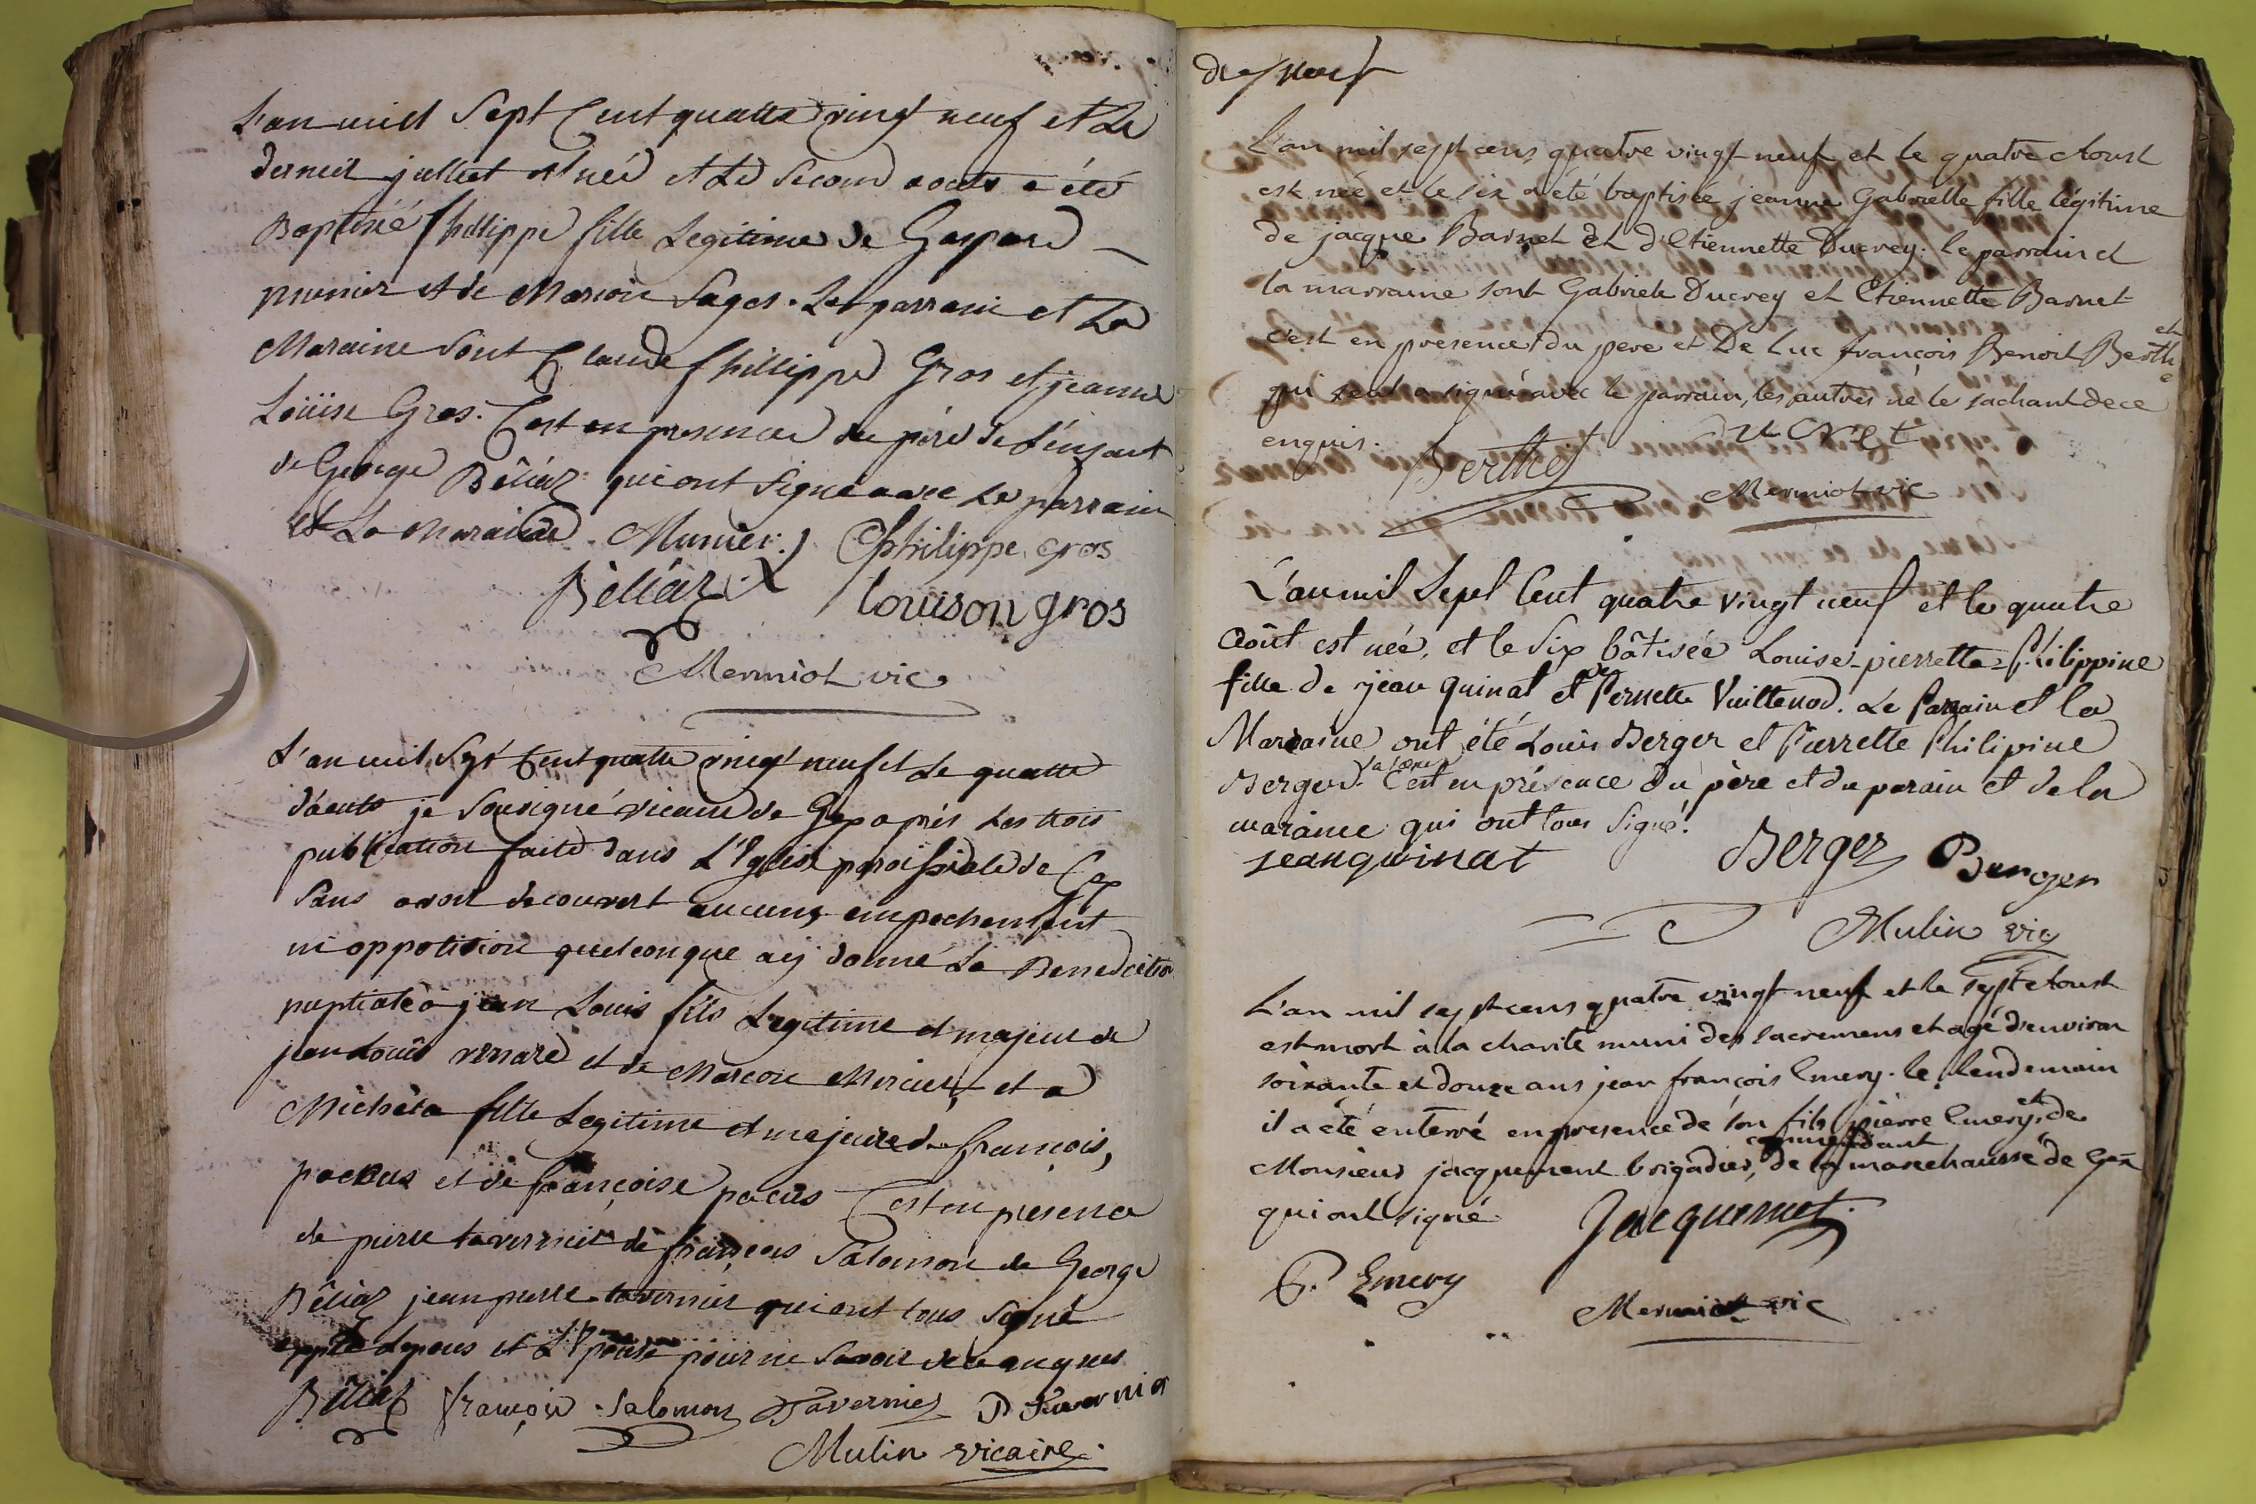 L'an mil Sept Cent quatre vingt neuf et Le
dernier juillet est née et Le Second aouts a été
Baptisée philippe fille Legitime de Gaspard
munier et de Marion Sages. Le parrain et La
Maraine Sont Claude philippe Gros et jeanne
Loüise Gros. C'est en presence du père de L'enfant
de George Béliaz qui ont Signé avec Le parrain
et La Maraine. Munier Cphilippe gros
Béliaz louison gros
Mermiot vic
L'an mil Sept Cent quatre vingt neuf et Le quatre
d'aouts je Sousigné vicaire de Gex après Les trois
publication faite dans L'Eglise paroissiale de Gex
Sans avoir decouvert aucuns empechement
ni oppotition quelconque aij donné La Benediction
nuptiale à jean Louis fils Legitime et majeur de
jean Loüis et de Marion Mercier et a
Michéta fille Legitime et majeure de françois
et de françoise C'est en presence
de pierre tavernier de françois Salomon de George
Béliaz jean pierre tavernier qui ont tous Signé
Lepous et L'Epouse pour ne Savoir de ce enquis
Béliaz françois Salomon Tavernier P Tavernier
Mulin vicaire.
dix neuf
L'an mil sept cens quatre vingt neuf et le quatre Aoust
est née et le six a été baptisée jeanne Gabrielle fille légitime
de jacque Barnet et d'Etiennette Ducrey. le parrain et
la marraine sont Gabriele Ducrey et Etiennette Barnet
c'est en presence du pere et De Luc françois Benoit Berthet
qui seul a signé avec le parrain, les autres ne le sachant de ce
enquis.
Berthet
Mermiot vic
L'an mil Sept Cent quatre vingt neuf et le quatre
Août est née, et le Six bâtisée Louise-pierrette-Philippine
fille de jean quinat et de Pernette Vuillenod. Le Parrain et la
Maraine ont été Louis Berger et Pierrette Philipine
Berger. C'est en présence du père et du parain et de la
maraine qui ont tous Signé.
jeanquinat Berger Berger
Mulin vic
L'an mil sept cens quatre vingt neuf et le sept Aoust
est mort à la charité muni des sacremens et agé d'environ
soixante et douze ans jean françois Emery. le lendemain
il a été enterré en presence de son fils pierre Emery et de
Monsieur jacquemet brigadier, commendant de la marechaussé de Gex
qui ont signé Jacquemet
P. Emery
Mermiot vic